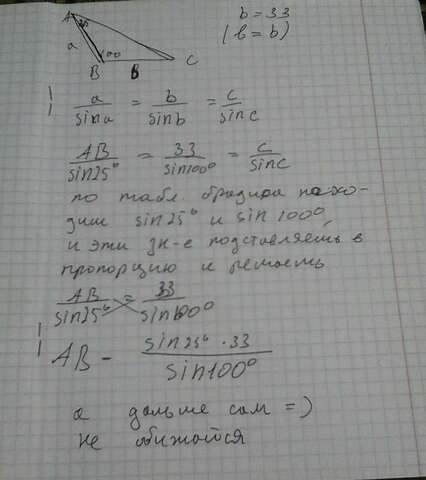 b = 33
(b = b)
A
25
a
100
B
B
C
a/sin a = b/sin b = c/sin c
AB/sin25° = 33/sin100° = c/sin c
по табл. брадиса нахо-
дим sin 25° и sin 100°,
и эти зн-е подставляешь в
пропорцию и решаешь
AB/sin25° = 33/sin100°
AB - sin25° · 33/sin100°
а дальше сам =)
не обижайся